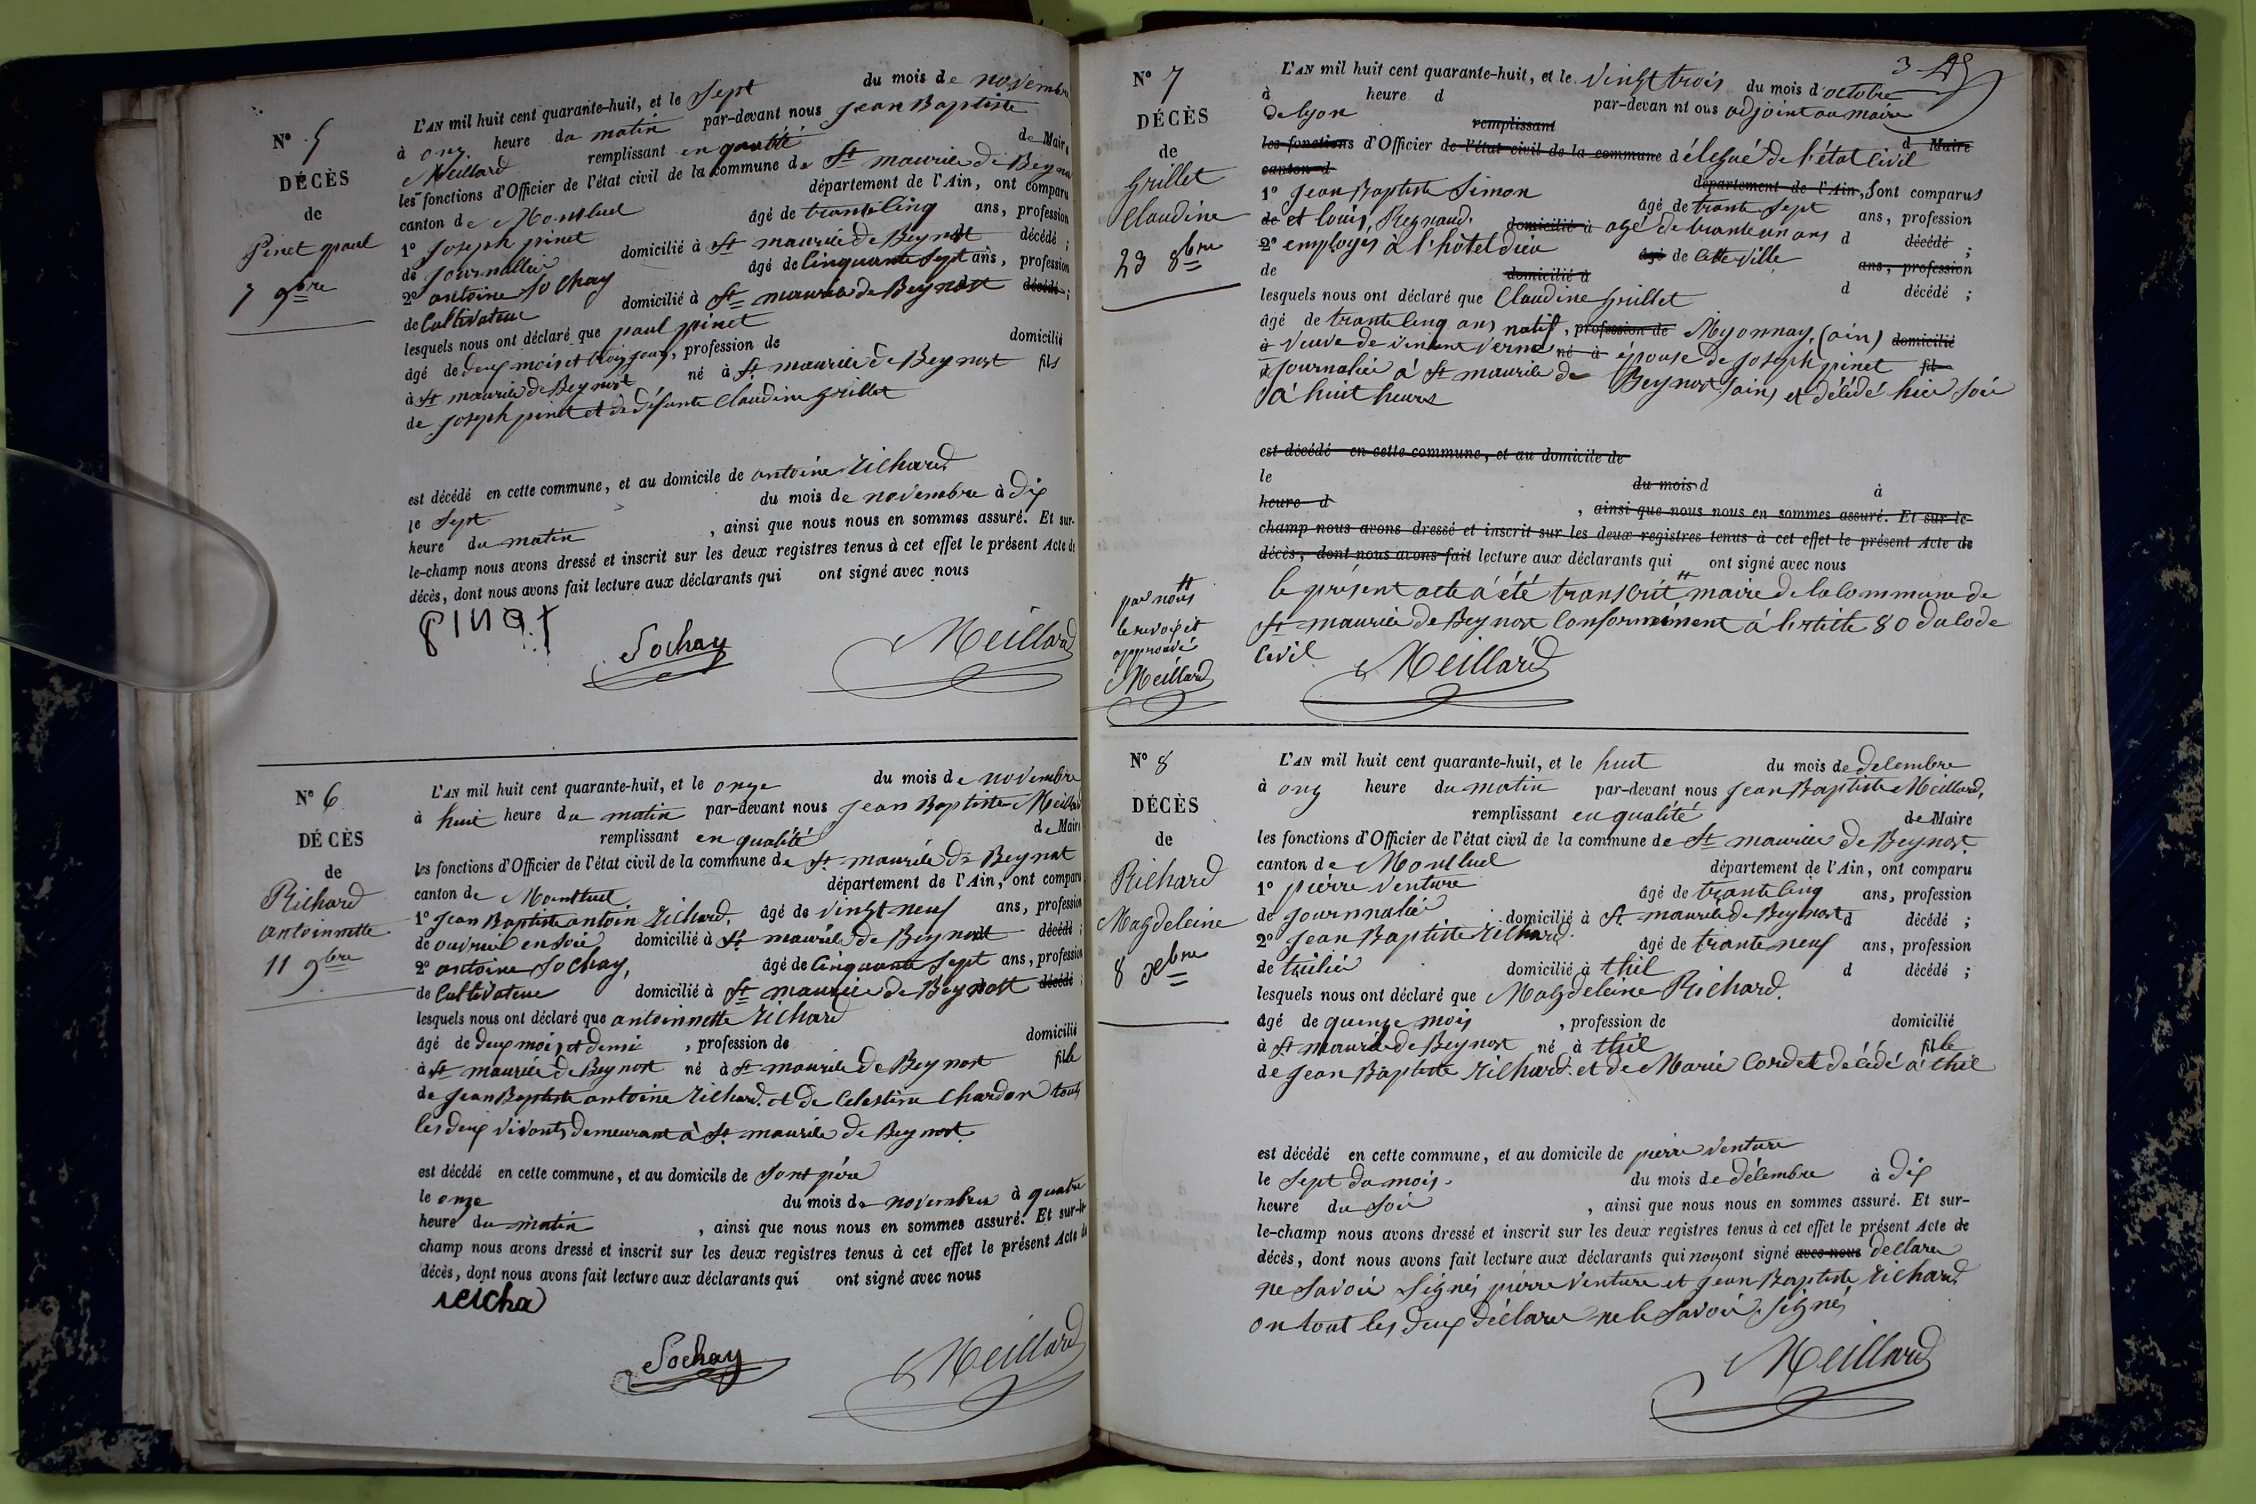 N° 5
DÉCÈS
de
Pinet paul
7 9bre
L'AN mil huit cent quarante-huit, et le Sept du mois de novembre
à onz heure du matin par-devant nous Jean Baptiste
Meillard remplissant en qualité de Maire
les fonctions d'Officier de l'état civil de la commune de St maurice de Beynost
canton de Montluel département de l'Ain, ont comparu
1° Joseph pinet âgé de trante cinq ans, profession
de Journallier domicilié à St maurice de Beynost décédé ;
2° antoine Sochay âgé de Cinquante Sept ans, profession
de Cultivateur domicilié à St maurice de Beynost décédé ;
lesquels nous ont déclaré que paul pinet
âgé de deux mois et trois jours, profession de domicilié
à St maurice de Beynost né à St maurice de Beynost fils
de Joseph pinet et de défunte Claudine Grillet
est décédé en cette commune, et au domicile de antoine Richard
le Sept du mois de novembre à Dix
heure du matin , ainsi que nous nous en sommes assuré. Et sur-
le-champ nous avons dressé et inscrit sur les deux registres tenus à cet effet le présent Acte de
décès, dont nous avons fait lecture aux déclarants qui ont signé avec nous
PINET
Sochay Meillard
N° 6
DÉCÈS
de
Richard
antoinnette
11 9bre
L'AN mil huit cent quarante-huit, et le onze du mois de novembre
à huit heure du matin par-devant nous Jean Baptiste Meillard
remplissant en qualité de Maire
les fonctions d'Officier de l'état civil de la commune de St maurice de Beynost
canton de Montluel département de l'Ain, ont comparu
1° Jean Baptiste antoin Richard, âgé de vingt neuf ans, profession
de ouvrier en Soie domicilié à St maurice de Beynost décédé ;
2° antoine Sochay, âgé de Cinquante Sept ans, profession
de Cultivateur domicilié à St maurice de Beynost décédé ;
lesquels nous ont déclaré que antoinnette Richard
âgé de deux mois et demi , profession de domicilié
à St maurice de Beynost né à St maurice de Beynost fille
de Jean Baptiste antoine Richard. et de Celestine Chardon touts
les deux vivants demeurant à St maurice de Beynost
est décédé en cette commune, et au domicile de Sont père
le onze du mois de novembre à quatre
heure du matin , ainsi que nous nous en sommes assuré. Et sur-le-
champ nous avons dressé et inscrit sur les deux registres tenus à cet effet le présent Acte de
décès, dont nous avons fait lecture aux déclarants qui ont signé avec nous
Sochay Meillard
N° 7
DÉCÈS
de
Grillet
Claudine
23 8bre
L'AN mil huit cent quarante-huit, et le vingt trois du mois d'octobre
à heure d par-devan nt ous adjoint au maire
de lyon remplissant d Maire
les fonctions d'Officier de l'état civil de la commune délégué de l'état Civil
canton d département de l'Ain, Sont comparus
1° Jean Baptiste Simon âgé de trante Sept ans, profession
de et louis Reynaud. domicilié à agé de trante un ans d décédé ;
2° employés à l'hôtel dieu âgé de Cette Ville ans, profession
de domicilié à d décédé ;
lesquels nous ont déclaré que Claudine Grillet
âgé de trante Cinq ans natif, profession de Miyonnay, (ain) domicilié
à Veuve de vincent Verne né à épouse de Joseph pinet fil
d Journalier à St maurice de Beynost (ain) et décédé hier Soir
à huit heures
est décédé en cette commune, et au domicile de
le du mois d à
heure d , ainsi que nous nous en sommes assuré. Et sur le-
champ nous avons dressé et inscrit sur les deux registres tenus à cet effet le présent Acte de
décès, dont nous avons fait lecture aux déclarants qui ont signé avec nous
le présent acte a été transcrit # maire de la Commune de
St maurice de Beynost Conformément à l'article 80 du Code
Civil Meillard
#
par nous
le renvoi et
approuvé
Meillard
N° 8
DÉCÈS
de
Richard
Magdeleine
8 Xbre
L'AN mil huit cent quarante-huit, et le huit du mois de Decembre
à onz heure du matin par-devant nous Jean Baptiste Meillard,
remplissant en qualité de Maire
les fonctions d'Officier de l'état civil de la commune de St maurice de Beynost.
canton de Montluel département de l'Ain, ont comparu
1° pierre Venture âgé de trante Cinq ans, profession
de Journnalier domicilié à St maurice de Beynost d décédé ;
2° Jean Baptiste Richard. âgé de trante neuf ans, profession
de tuilier domicilié à thil d décédé ;
lesquels nous ont déclaré que Magdeleine Richard.
âgé de quinze mois , profession de domicilié
à St maurice de Beynost né à thil fille
de Jean Baptiste Richard. et de Marie Cordet décédé à thil
est décédé en cette commune, et au domicile de pierre Venture
le Sept du mois. du mois de décembre à Dix
heure du Soir , ainsi que nous nous en sommes assuré. Et sur-
le-champ nous avons dressé et inscrit sur les deux registres tenus à cet effet le présent Acte de
décès, dont nous avons fait lecture aux déclarants qui non ont signé avec nous declare
ne Savoir Signés pierre Venture et Jean Baptiste Richard
on tout les deux déclare ne le Savoir. Signés
Meillard